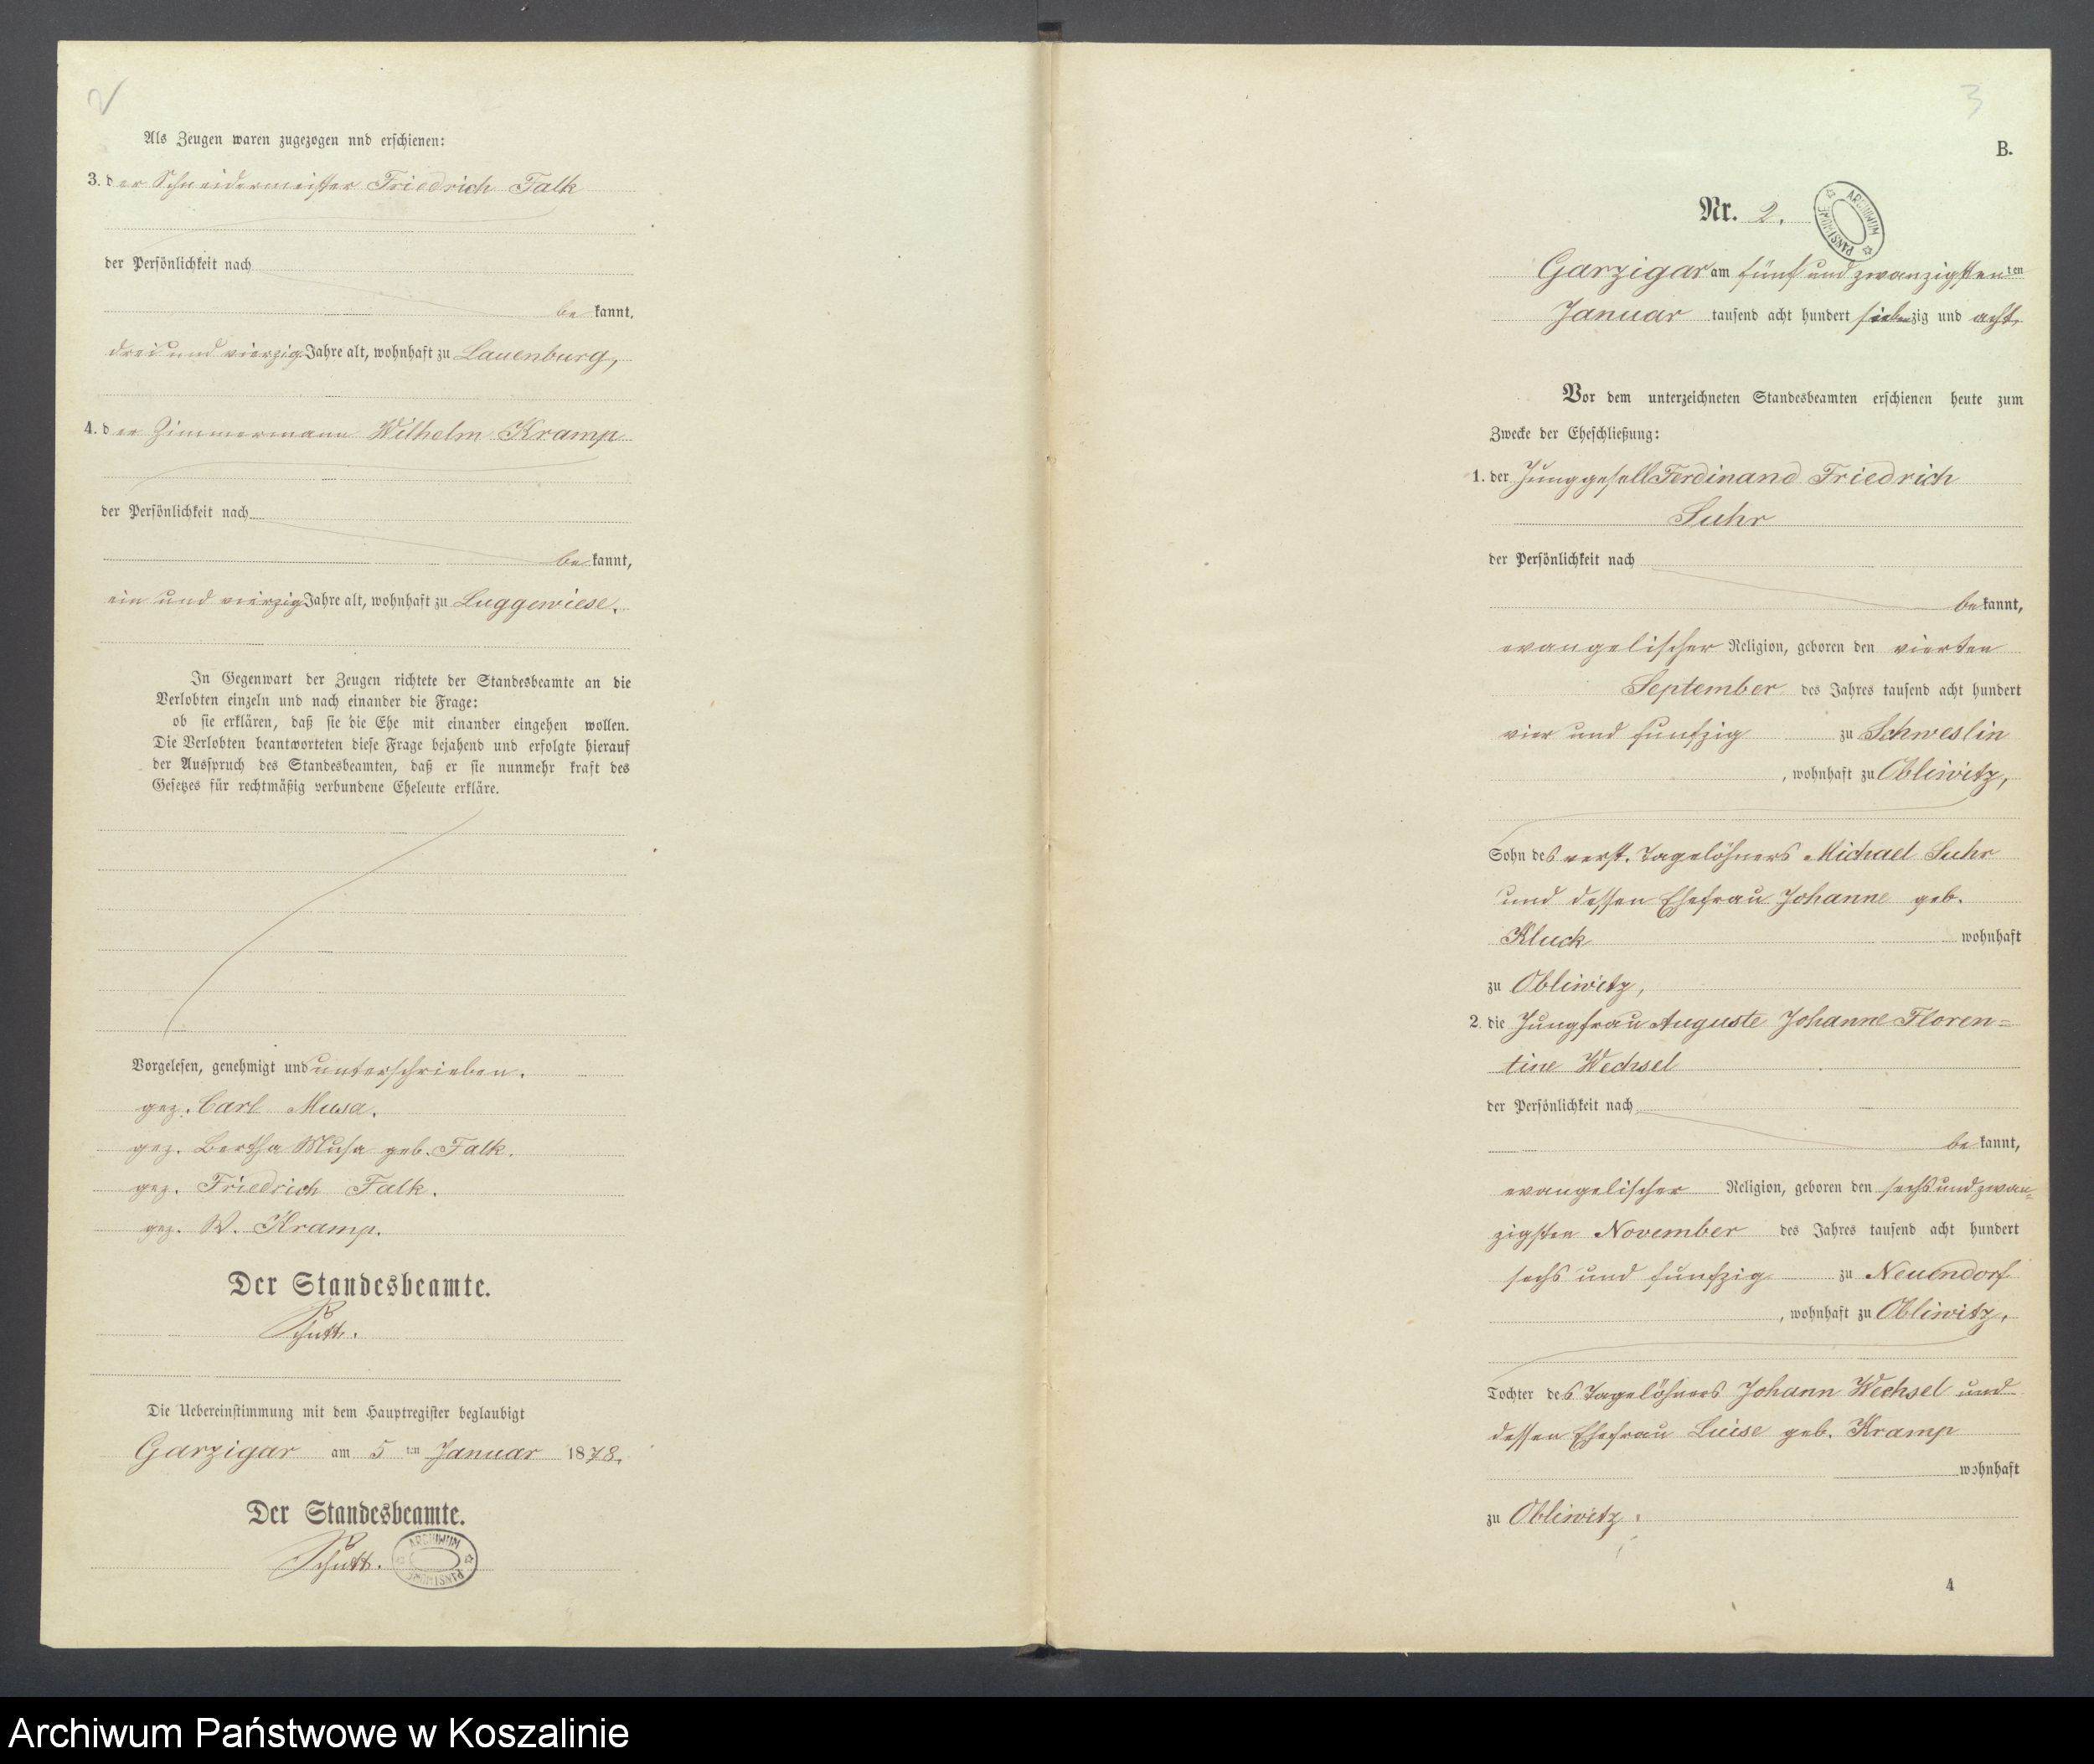 2
Als Zeugen waren zugezogen nnd erschienen:
3. der Schneidermeister Friedrich Falk
der Persönlichkeit nach
be kannt,
drei und vierzig Jahre alt, wohnhaft zu Lauenburg,
4. der Zimmermann Wilhelm Kramp
der Persönlichkeit nach
be kannt,
ein und vierzig Jahre alt, wohnhaft zu Luggewiese.
In Gegenwart der Zeugen richtete der Standesbeamte an die
Verlobten einzeln und nach einander die Frage:
ob sie erklären, daß sie die Ehe mit einander eingehen wollen.
Die Verlobten beantworteten diese Frage bejahend und erfolgte hierauf
der Ausspruch des Standesbeamten, daß er sie nunmehr kraft des
Gesetzes für rechtmäßig verbundene Eheleute erkläre.
Vorgelesen, genehmigt und unterschrieben.
gez. Carl Musa.
gez. Bertha Musa geb. Falk.
gez. Friedrich Falk.
gez. W. Kramp.
Der Standesbeamte.
Schutt.
Die Uebereinstimmung mit dem Hauptregister beglaubigt
Garzigar am 5 ten Januar 1878.
Der Standesbeamte.
Schutt.
ARCHIWUM PAŃSTWOWE
3
B.
Nr. 2.
ARCHIWUM PAŃSTWOWE
Garzigar am fünf und zwanzigsten ten
Januar tausend acht hundert siebenzig und acht.
Vor dem unterzeichneten Standesbeamten erschienen heute zum
Zwecke der Eheschließung:
1. der Junggesell Ferdinand Friedrich
Suhr
der Persönlichkeit nach
be kannt,
evangelischer Religion, geboren den vierten
September des Jahres tausend acht hundert
vier und funfzig zu Schweslin
, wohnhaft zu Obliwitz,
Sohn des verst. Tagelöhners Michael Suhr
und dessen Ehefrau Johanne geb.
Kluck wohnhaft
zu Obliwitz,
2. die Jungfrau Auguste Johanne Floren=
tine Wechsel
der Persönlichkeit nach
be kannt,
evangelischer Religion, geboren den sechs und zwan=
zigsten November des Jahres tausend acht hundert
sechs und funfzig zu Neuendorf
, wohnhaft zu Obliwitz,
Tochter des Tagelöhners Johann Wechsel und
dessen Ehefrau Luise geb. Kramp
wohnhaft
zu Obliwitz.
4
Archiwum Państwowe w Koszalinie